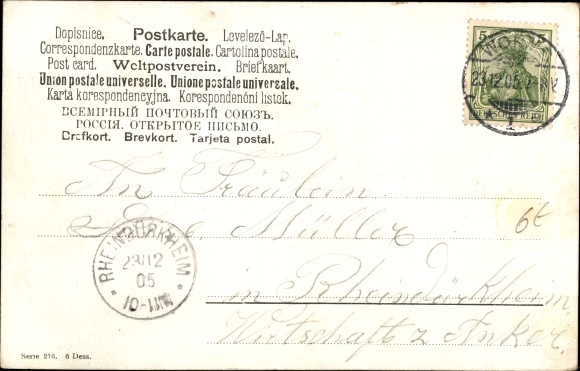 Dopisnice. Postkarte. Levelező-Lap.
Correspondenzkarte. Carte postale. Cartolina postale.
Post card. Weltpostverein. Briefkaart.
Union postale universelle. Unione postale universale.
Karta korespondencyjna. Korespondenční lístek.
ВСЕМІРНЫЙ ПОЧТОВЫЙ СОЮЗЪ.
РОССІЯ. ОТКРЫТОЕ ПИСЬМО.
Brefkort. Brevkort. Tarjeta postal.
5 5
WO
23.12.05.
DEUTSCHES REICH
1
An Fräulein
Müller
6t
RHEINDÜRKHEIM
23/12
05
in Rheindürkheim
Wirtschaft z Anker.
Serie 216. 6 Dess.